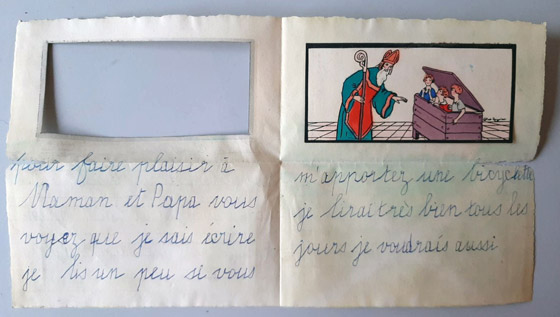 pour faire plaisir à
Maman et Papa vous
voyez que je sais écrire
je lis un peu si vous
m'apportez une bicyclette
je lirai très bien tous les
jours je voudrais aussi